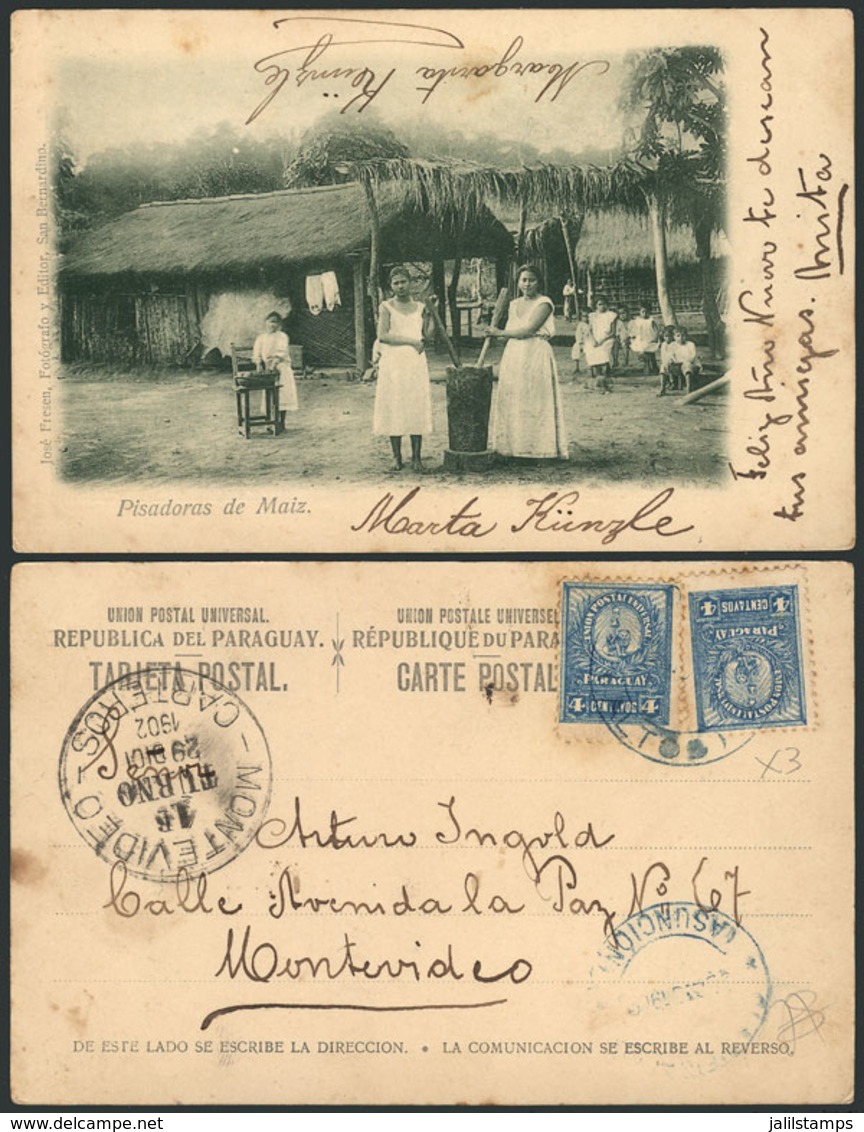 Margarita Künzle
José Fresen, Fotógrafo y Editor, San Bernardino.
Feliz Año Nuevo te desean
tus amiegas. Anita
Pisadoras de Maiz.
Marta Künzle
UNION POSTAL UNIVERSAL.
REPUBLICA DEL PARAGUAY.
TARJETA POSTAL.
UNION POSTALE UNIVERSEL
RÉPUBLIQUE DU PARA
CARTE POSTAL
UNION POSTALE UNIVERSELLE
PARAGUAY
4 CENTAVOS 4
4 CENTAVOS 4
PARAGUAY
MONTEVIDEO - CARTEROS -
1902
29 DICI
TURNO
16
X3
Arturo Ingold
Calle Avenida la Paz No. 67
Montevideo
ASUNCION
DE ESTE LADO SE ESCRIBE LA DIRECCION. • LA COMUNICACION SE ESCRIBE AL REVERSO.
jalilstamps